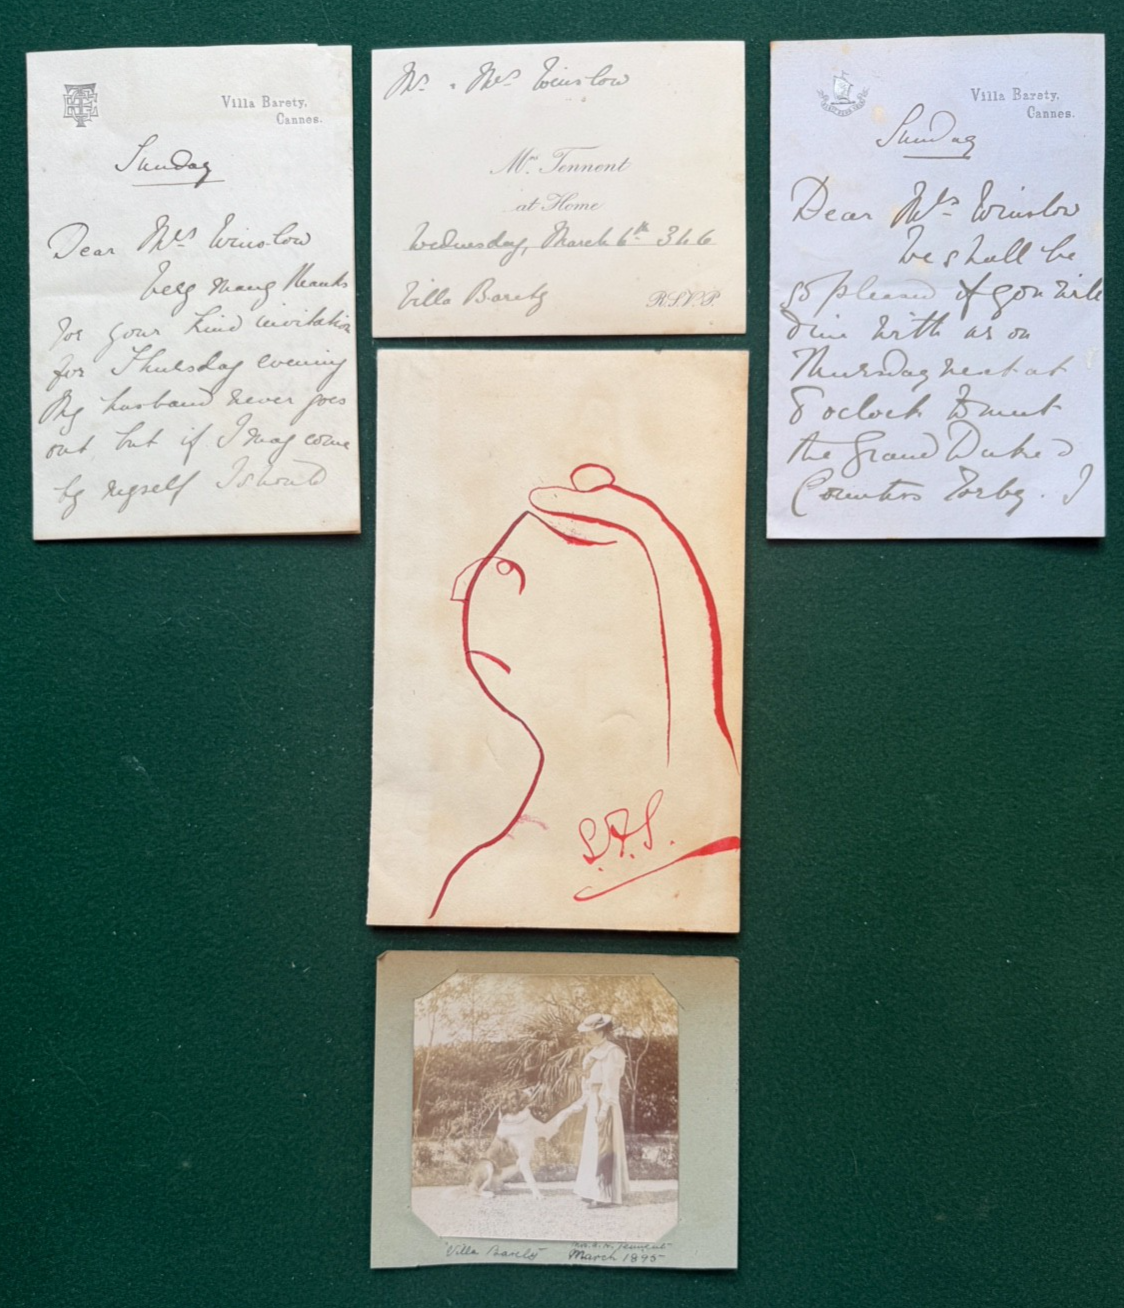 Villa Barety,
Cannes.
Sunday
Dear Mrs Winslow
Very many thanks
for your kind invitation
for Thursday evening
My husband never goes
out but if I may come
by myself I should
Mr. & Mrs Winslow
Mrs. Tennent
at Home
Wednesday, March 6th 3 to 6
Villa Barety
R.S.V.P
Villa Barety,
Cannes.
Sunday
Dear Mrs Winslow
We shall be
so pleased if you will
dine with us on
Thursday next at
8 oclock to meet
the Grand Duke &
Countess Torby. I
S.F.S.
Villa Barety
Tennent
March 1895